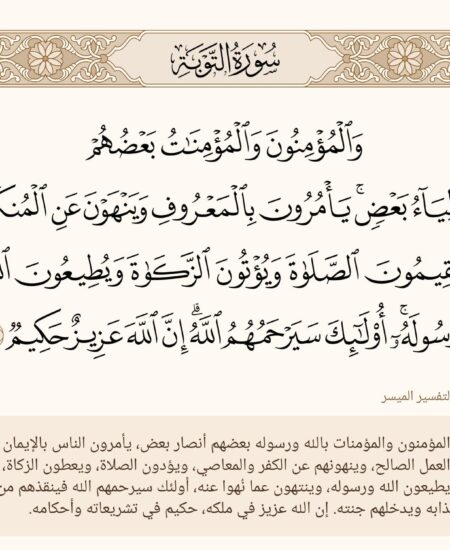 سُورَةُ التَّوْبَةِ
وَالْمُؤْمِنُونَ وَالْمُؤْمِنَاتُ بَعْضُهُمْ
بَعْضٍ ۚ يَأْمُرُونَ بِالْمَعْرُوفِ وَيَنْهَوْنَ عَنِ
الصَّلَاةَ وَيُؤْتُونَ الزَّكَاةَ وَيُطِيعُونَ
أُولَٰئِكَ سَيَرْحَمُهُمُ اللَّهُ ۗ إِنَّ اللَّهَ عَزِيزٌ حَكِيمٌ
التفسير الميسر
المؤمنون والمؤمنات بالله ورسوله بعضهم أنصار بعض، يأمرون الناس بالإيمان
العمل الصالح، وينهونهم عن الكفر والمعاصي، ويؤدون الصلاة، ويعطون الزكاة،
يطيعون الله ورسوله، وينتهون عما نُهوا عنه، أولئك سيرحمهم الله فينقذهم من
ذابه ويدخلهم جنته. إن الله عزيز في ملكه، حكيم في تشريعاته وأحكامه.